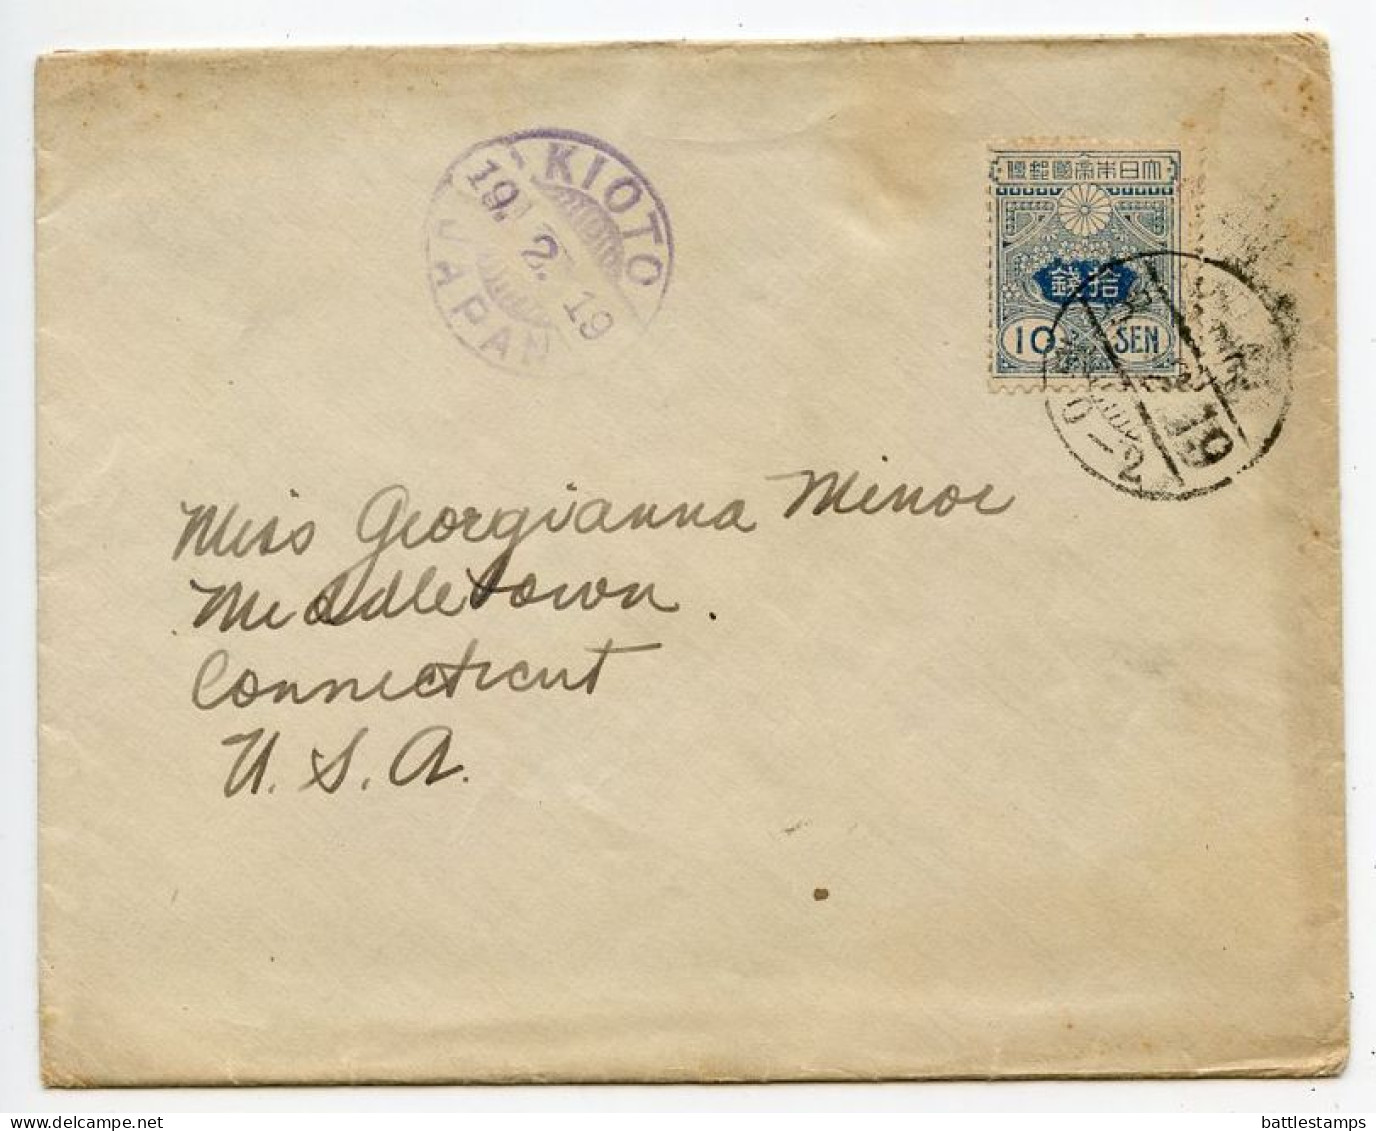 KIOTO
19. 2. 19
JAPAN
大日本帝國郵便
拾錢
10 SEN
19
Miss Georgianna Minor
Middletown
Connecticut
U. S. A.
delcampe.net
battlestamps